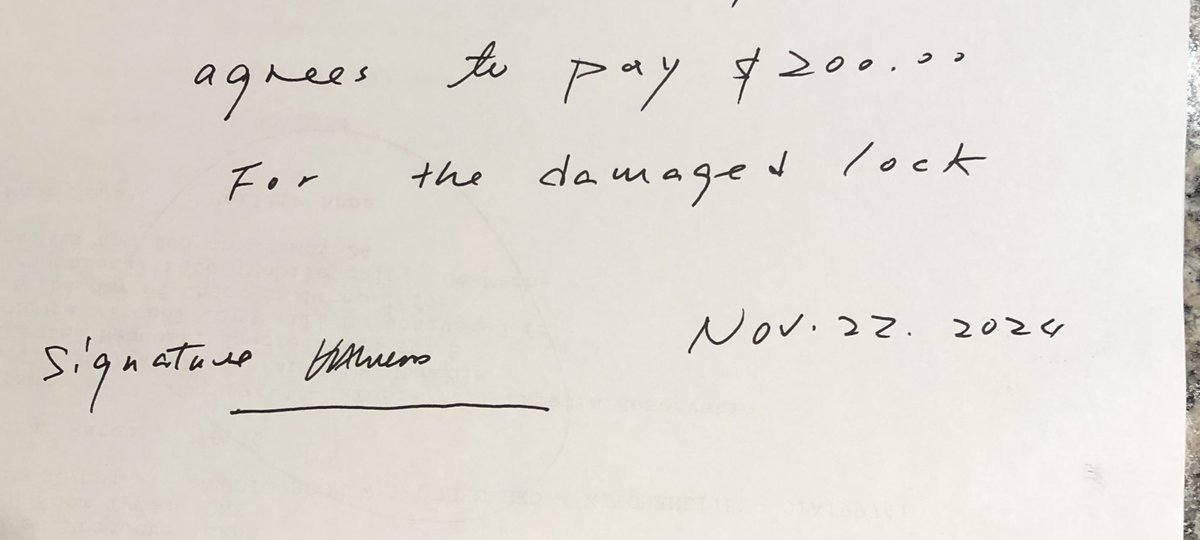 agrees to pay $200.00
For the damaged lock
Nov. 22. 2024
Signature